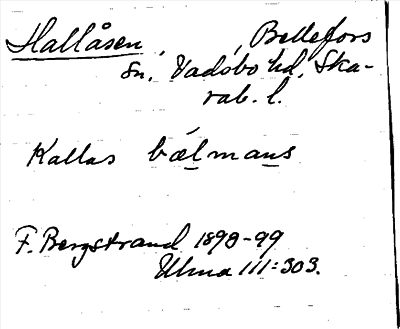 Hallåsen, Bellefors
sn, Vadsbo hd, Ska-
rab. l.
Kallas bælmans
F. Bergstrand 1898-99
Ulma 111:303.